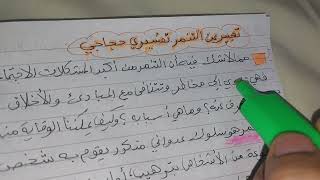 تعبير عن التنمر تفسيري حجاجي
مما لاشك فيه أن التنمر من أكبر المشكلات الاجتما
إلى مخاطر وتتنافى مع المبادئ والأخلاق
وماهي أسبابه؟ وكيف يمكننا الوقاية منه
سلوك عدواني متكرر يقوم به شخص
من الأشخاص بترهيب أو